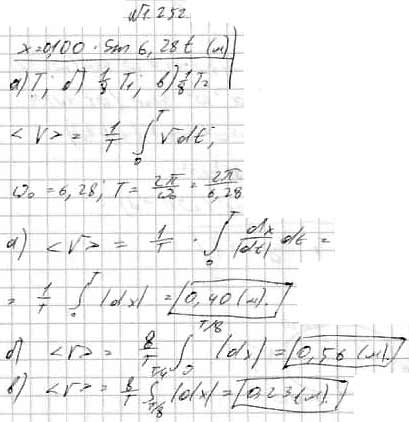 №1.252
x=0,100 · Sin 6,28t (м)
а) T; б) 1/8 T₁; в) 1/8 T₂
<V> = 1/T ∫₀ᵀ Vdt;
ω₀ = 6,28; T = 2π/ω₀ = 2π/6,28
а) <V> = 1/T · ∫₀ᵀ dx/|dt| dt =
= 1/T ∫₀ᵀ |dx| = 0,40 (м).
б) <V> = 8/T ∫₀^T/8 |dx| = 0,56 (м).
в) <V> = 8/T ∫_T/8^T/4 |dx| = 0,23 (м).